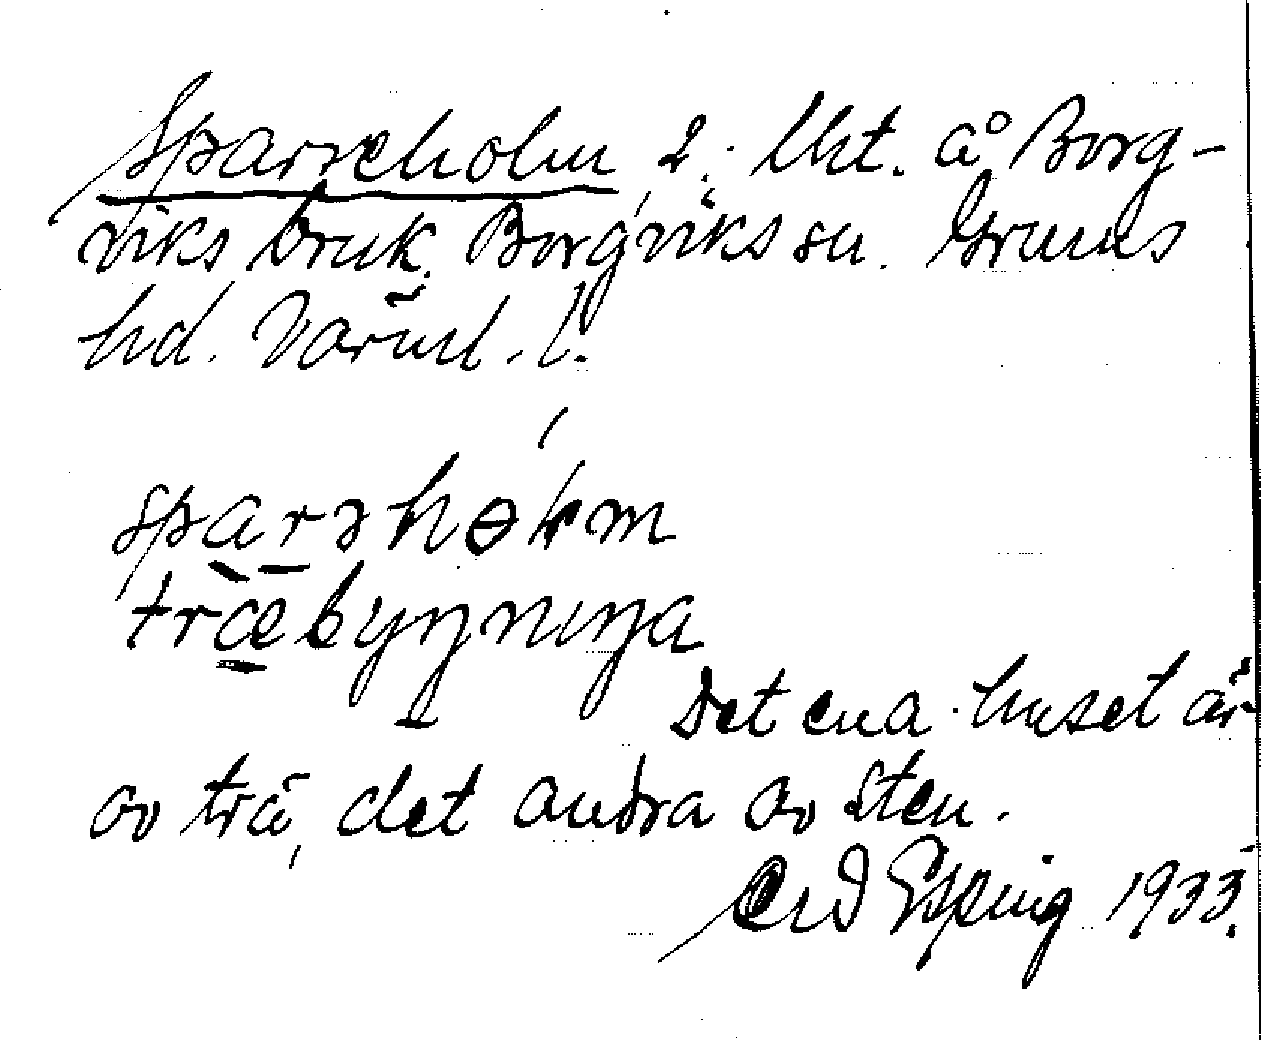 Sparreholm, 2. lht. å Borg-
viks bruk, Borgviks sn. Grums
hd. Värml. l.
sparshɵlm
træbyŋniŋa
Det ena huset är
av trä, det andra av sten.
Erd Esping 1933.